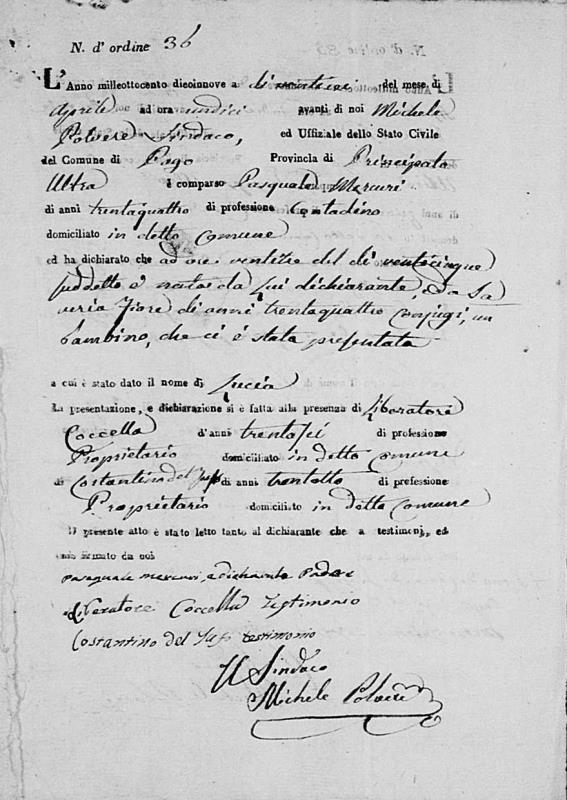 N. d' ordine 36
L'Anno milleottocento diecinnove a di ventisei del mese di
Aprile ad ora undici avanti di noi Michele
Polvere Sindaco, ed Uffiziale dello Stato Civile
del Comune di Pago Provincia di Principato
Ultra è comparso Pasquale Mercuri
di anni trentaquattro di professione Contadino
domiciliato in detto Comune
ed ha dichiarato che ad ore ventitre del di venticinque
suddetto è nato da lui dichiarante, e da Sa
veria Fiore di anni trentaquattro conjugi, un
bambino, che ci è stata presentata
a cui è stato dato il nome di Lucia
La presentazione, e dichiarazione si è fatta alla presenza di Liberatore
Coccella d'anni trentasei di professione
Proprietario domiciliato in detto Comune
di Costantino del di anni trentotto di prefessione
Proprietario domiciliato in detto Comune
Il presente atto è stato letto tanto al dichiarante che a testimonj, ed
indi firmato da noi
Pasquale mercuri e dichiarante Padre
Liberatore Coccella Testimonio
Costantino del testimonio
Il Sindaco
Michele Polvere